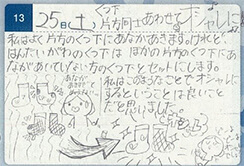 13
25日(土)
くつ下
片方同士あわせてオシャレに
私はよく片方のくつ下にあながあきます。けれど
はんたいがわのくつ下は ほかの片方のくつ下にあ
ながあいていない方のくつ下とセットにします。
私はこのようなことでオシャレに
するということは良いこと
だと思いました。